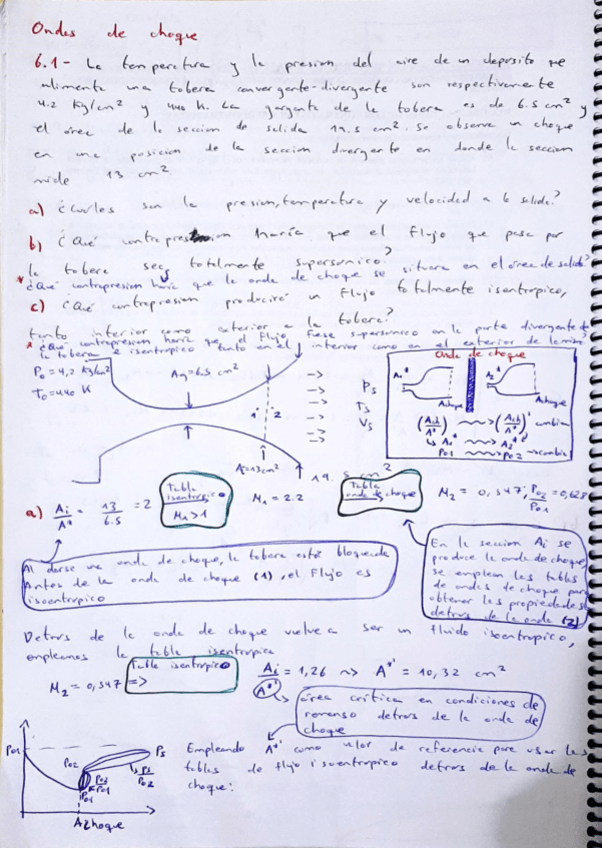 Ondas de choque
6.1- La temperatura y la presion del aire de un deposito que
alimenta una tobera convergente-divergente son respectivamente
4.2 Kg/cm² y 440 K. La garganta de la tobera es de 6.5 cm² y
el area de la seccion de salida 19.5 cm². Se observa un choque
en una posicion de la seccion divergente en donde la seccion
mide 13 cm².
a) ¿Cuales son la presion, temperatura y velocidad a la salida?
b) ¿Qué contrapresion haría que el flujo que pasa por
la tobera sea totalmente supersonico?
* ¿Qué contrapresion haría que la onda de choque se situara en el área de salida?
c) ¿Qué contrapresion produciría un flujo totalmente isentropico,
tanto interior como exterior a la tobera?
* ¿Qué contrapresion haría que el flujo fuese supersonico en la parte divergente de
la tobera e isentropico tanto en el interior como en el exterior de la misma
P₀ = 4,2 Kg/cm²
T₀ = 440 K
Ag = 6.5 cm²
1 2
A = 13 cm²
19.5 cm²
Ps
Ts
Vs
Onda de choque
A₁* A₂*
Achoque Achoque
(Ach/A*) (Ach/A*)' cambia
A₁* A₂*
P01 P02 → cambia
a) Ai/A* = 13/6.5 = 2
Tabla
isentropico
M₁ > 1
M₁ = 2.2
Tabla
onda de choque
M₂ = 0,547; P02/P01 = 0,628
Al darse una onda de choque, la tobera esté bloqueada
Antes de la onda de choque (1), el flujo es
isoentropico
En la seccion Ai se
produce la onda de choque,
se emplean las tablas
de ondas de choque para
obtener las propiedades
detras de la onda (2)
Detras de la onda de choque vuelve a ser un fluido isoentropico,
empleamos la tabla isentropica
M₂ = 0,547 =>
Tabla isentropico
Ai/A*' = 1,26 ~> A*' = 10,32 cm²
área critica en condiciones de
remanso detras de la onda de
choque
P01
P02
P02/P01
Ps
Ps/P02
A2hoque
Empleando A*' como valor de referencia para usar las
tablas de flujo isoentropico detras de la onda de
choque: